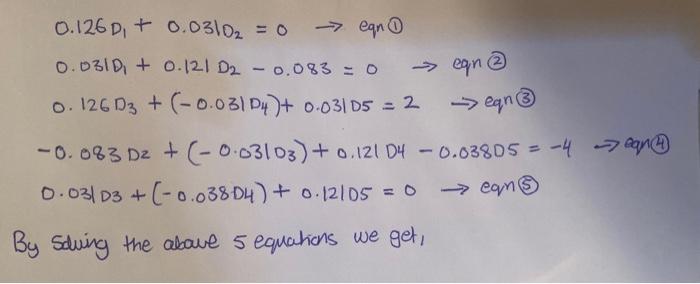 0.126 D₁ + 0.031D₂ = 0 → eqn ①
0.031D₁ + 0.121 D₂ - 0.083 = 0 → eqn ②
0.126 D3 + (-0.031D4) + 0.031D5 = 2 → eqn ③
-0.083 D2 + (-0.031D3) + 0.121 D4 - 0.038D5 = -4 → eqn ④
0.031 D3 + (-0.038D4) + 0.121D5 = 0 → eqn ⑤
By solving the above 5 equations we get,